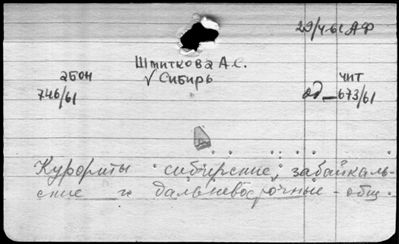 29/4-61 АФ
Шмиткова А.С.
√ Сибирь
абон
746/61
чит
од_673/61
Курорты сибирские, забайкаль-
ские и дальневосточные - общ.